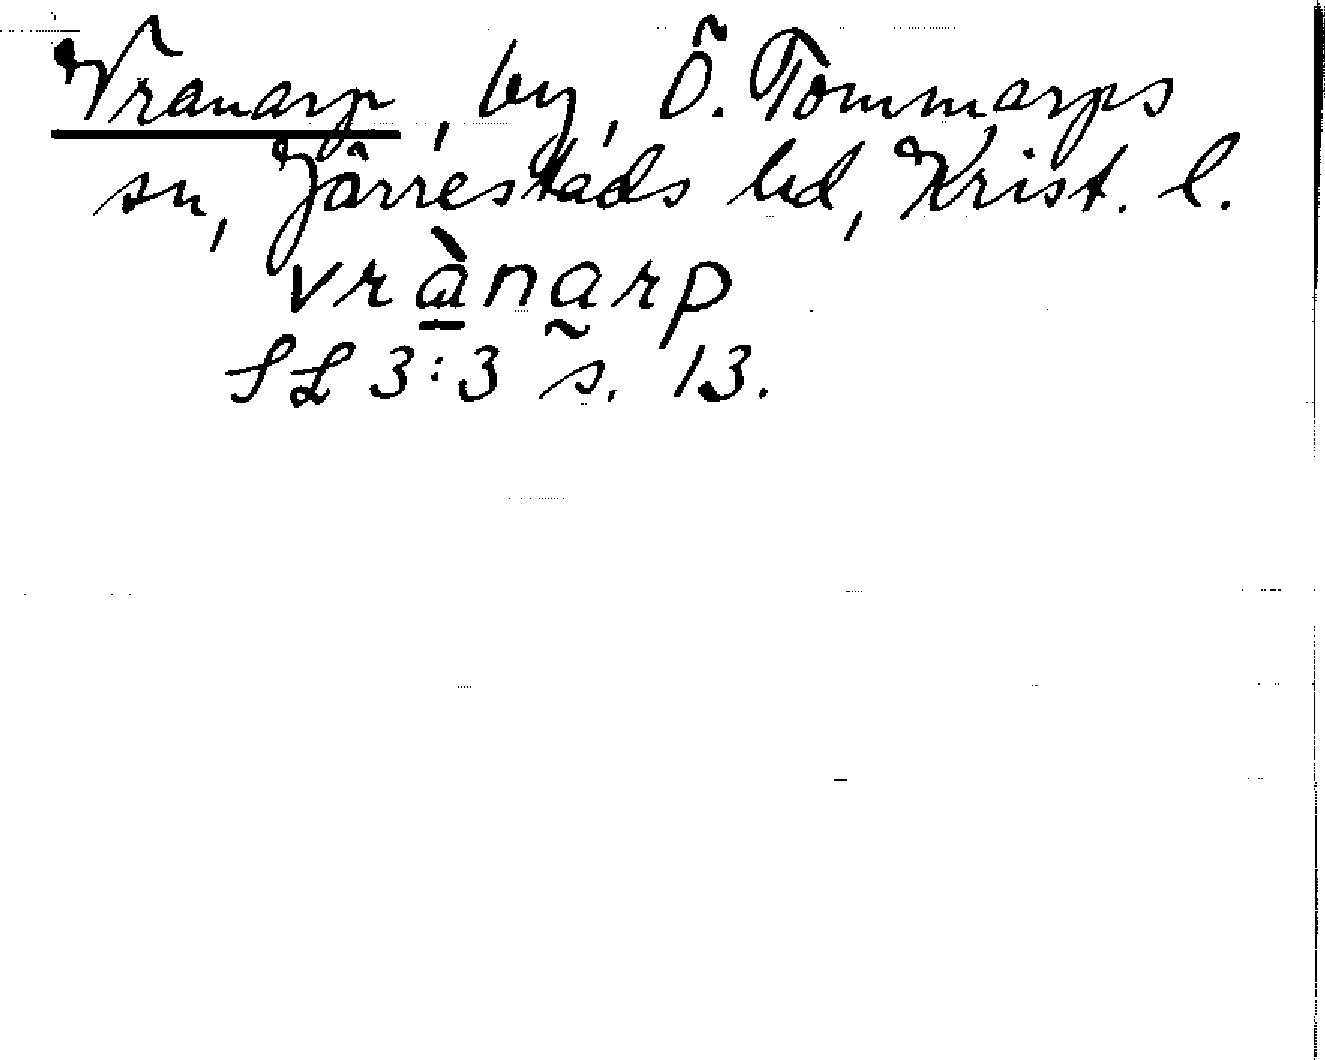 Vranarp, by, Ö. Tommarps
sn, Järrestads hd, Krist. l.
vrànarp
SL 3:3 s. 13.